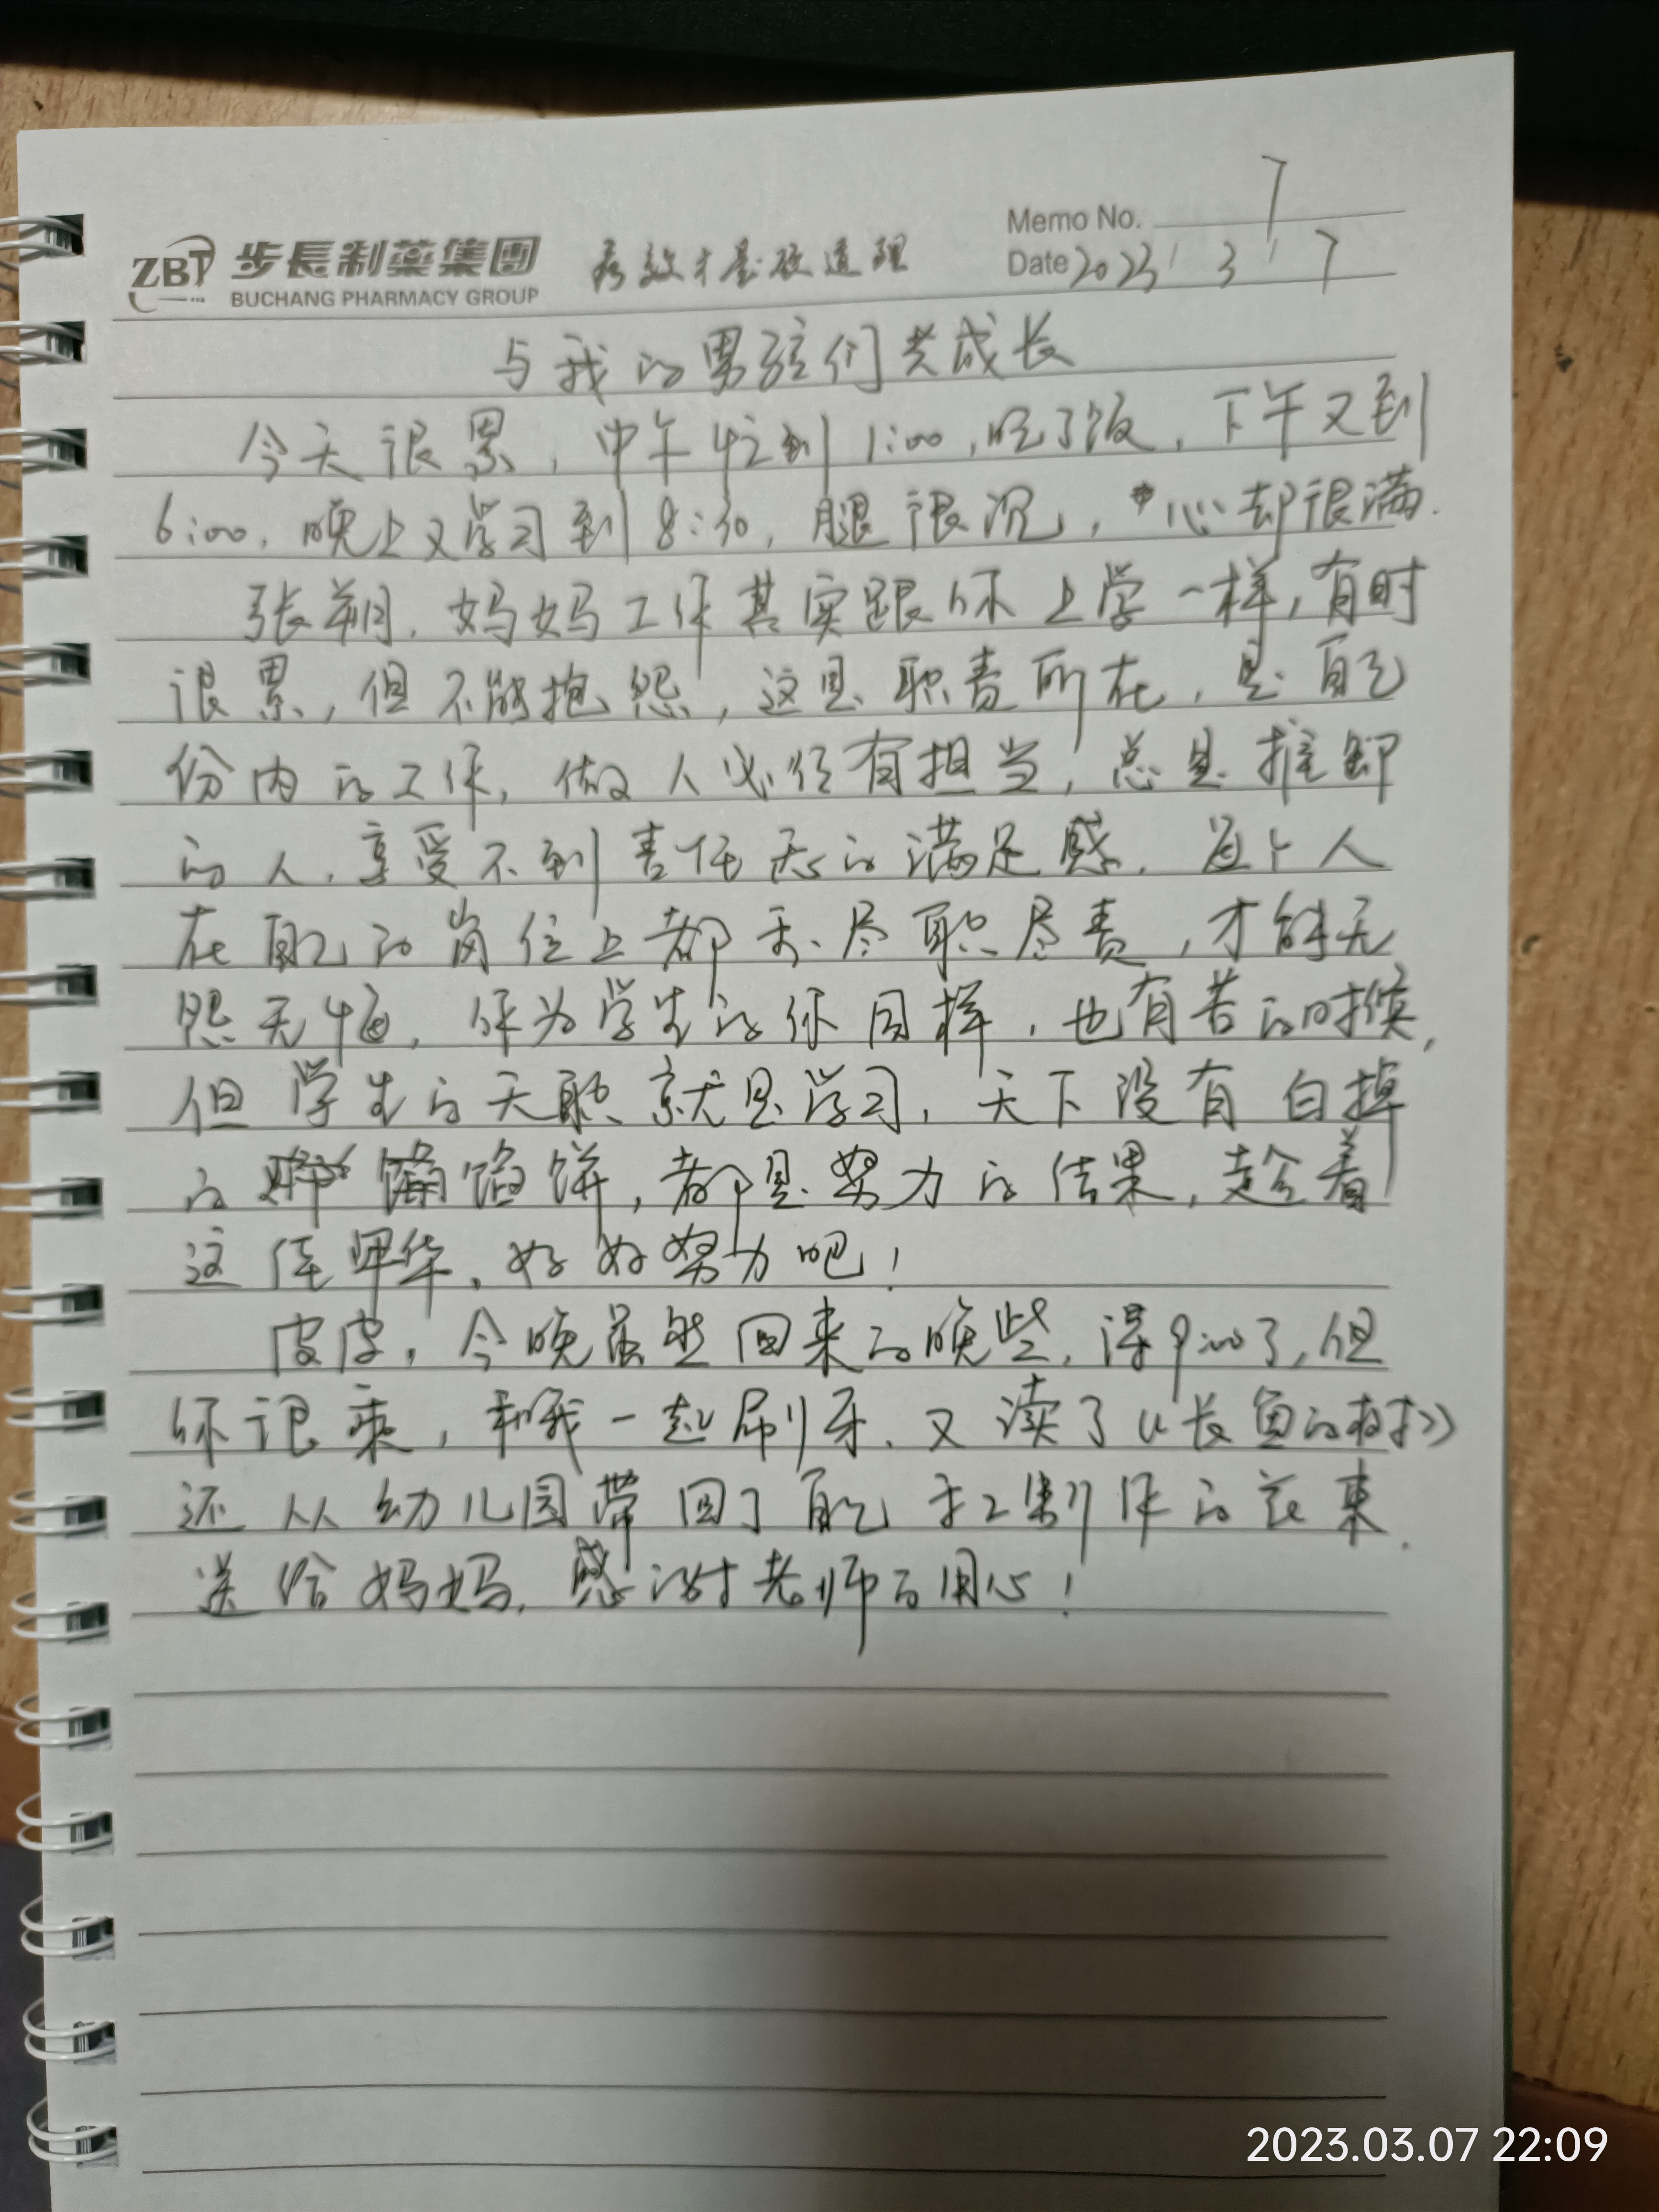 ZBT 步長制藥集團
BUCHANG PHARMACY GROUP
疗效才是硬道理
Memo No. 7
Date 2023 / 3 / 7
与我的男孩们共成长
今天很累，中午忙到1:00，吃了饭，下午又到
6:00，晚上又学习到8:30，腿很沉，心却很满.
张翔，妈妈工作其实跟你上学一样，有时
很累，但不能抱怨，这是职责所在，是自己
份内的工作，做人必须有担当，总是推卸
的人，享受不到责任感的满足感，每个人
在自己的岗位上都要尽职尽责，才能无
怨无悔，作为学生的你同样，也有苦的时候，
但学生的天职就是学习，天下没有白掉
的馅饼，都是努力的结果，趁着
这年华，好好努力吧！
皮皮，今晚虽然回来的晚些，得9:00了，但
你很乘，和我一起刷牙，又读了《长鱼的树》
还从幼儿园带回了自己手工制作的花束.
送给妈妈，感谢老师的用心！
2023.03.07 22:09